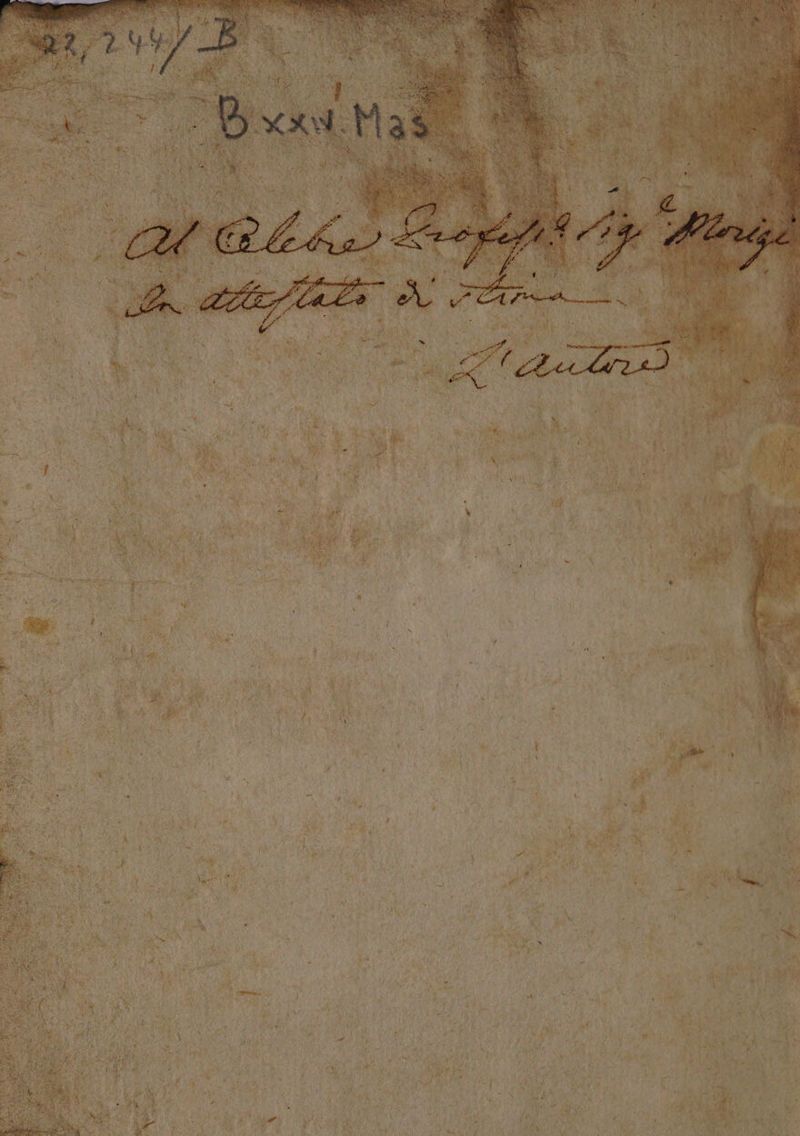 22,244/B
B xxiv. Mas
Al Celebre Profess.e Sig.e Morigi
In attestato di stima
L'autore